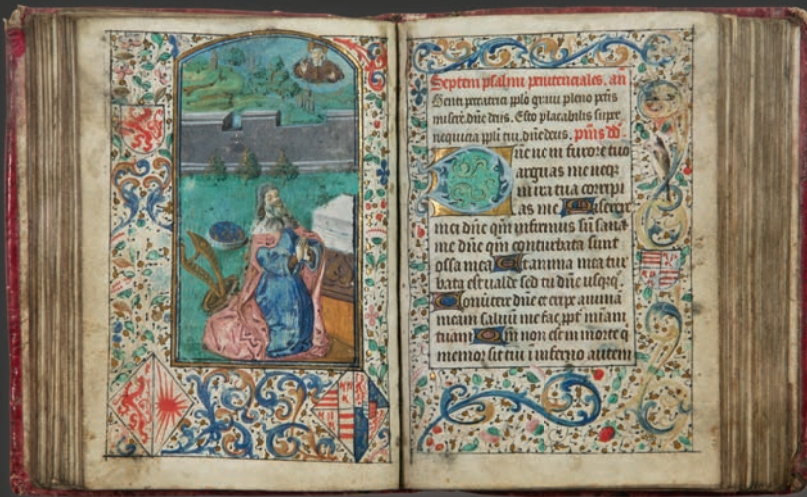 Septem psalmi penitenciales. an
Genti peccatrici pplo graui pleno pctis
misere. dñe deus. Esto placabilis supre
nequicia ppli tui. dñe deus. pm̃s dd.
Dñe ne in furore tuo
arguas me neq
in ira tua corripi
as me. Miserere
mei dñe qm̃ infirmus sũ sana
me dñe qm̃ conturbata sunt
ossa mea Et anima mea tur
bata est ualde sed tu dñe usqq
Conuertere dñe et eripe animã
meam saluũ me fac ppt miam
tuam Qm̃ non est in morte q
memor sit tui i inferno autem